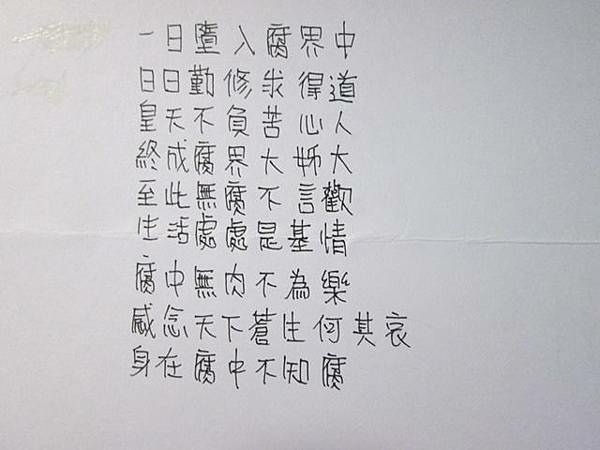 一日墮入腐界中
日日勤修求得道
皇天不負苦心人
終成腐界大姊大
至此無腐不言歡
生活處處是基情
腐中無肉不為樂
感念天下蒼生何其哀
身在腐中不知腐